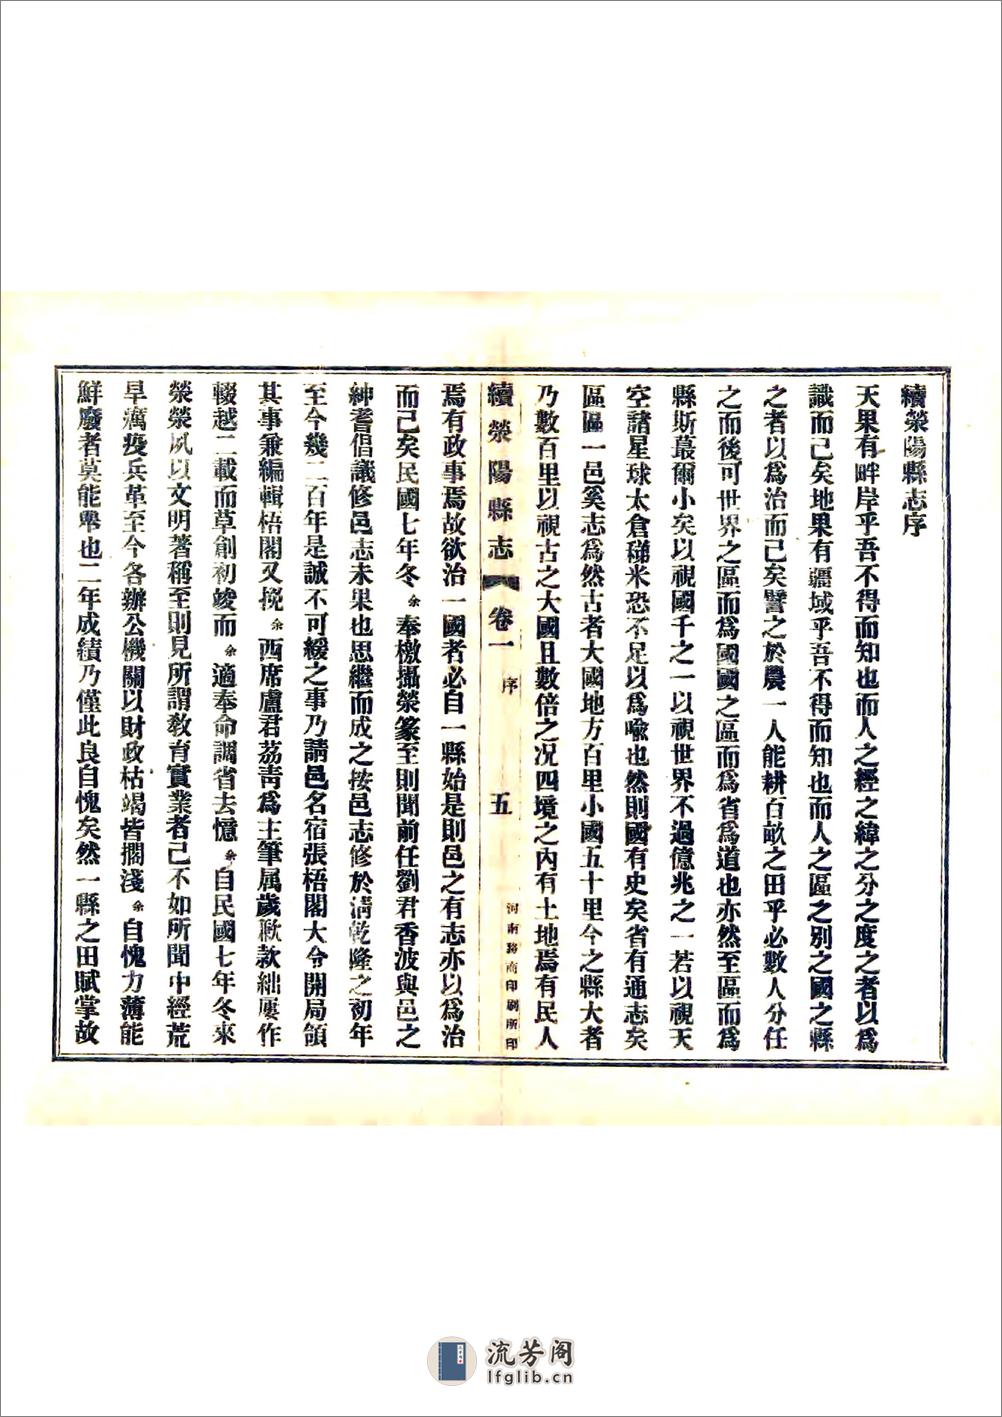 續滎陽縣志序
天果有畔岸乎吾不得而知也而人之經之緯之分之度之者以爲
識而已矣地果有疆域乎吾不得而知也而人之區之別之國之縣
之者以爲治而已矣譬之於農一人能耕百畝之田乎必數人分任
之而後可世界之區而爲國國之區而爲省爲道也亦然至區而爲
縣斯蕞爾小矣以視國千之一以視世界不過億兆之一若以視天
空諸星球太倉稊米恐不足以爲喩也然則國有史矣省有通志矣
區區一邑奚志爲然古者大國地方百里小國五十里今之縣大者
乃數百里以視古之大國且數倍之况四境之內有土地焉有民人
續滎陽縣志 卷一 序 五 河南商務印刷所印
焉有政事焉故欲治一國者必自一縣始是則邑之有志亦以爲治
而已矣民國七年冬余奉檄攝滎篆至則聞前任劉君香波與邑之
紳耆倡議修邑志未果也思繼而成之按邑志修於淸乾隆之初年
至今幾二百年是誠不可緩之事乃請邑名宿張梧閣大令開局領
其事兼編輯梧閣又挽余西席盧君荔靑爲主筆属歲歉款絀屢作
輟越二載而草創初竣而余適奉命調省去憶余自民國七年冬來
滎滎夙以文明著稱至則見所謂敎育實業者已不如所聞中經荒
旱癘疫兵革至今各辦公機關以財政枯竭皆擱淺余自愧力薄能
鮮廢者莫能舉也二年成績乃僅此良自愧矣然一縣之田賦掌故
流芳阁
lfglib.cn